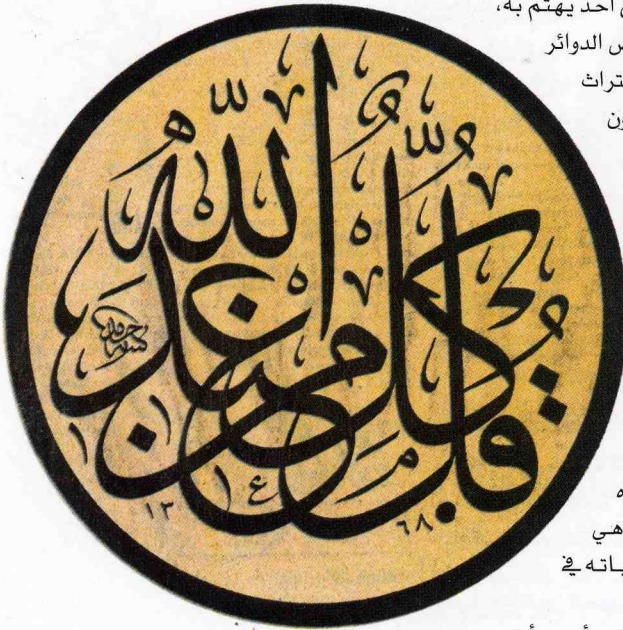 أحد يهتم به،
ض الدوائر
تراث
ون
قُلْ كُلٌّ مِنْ عِنْدِ اللّٰهِ
كتبه حامد
١٣ ٦٨
ه
هي
ياته في